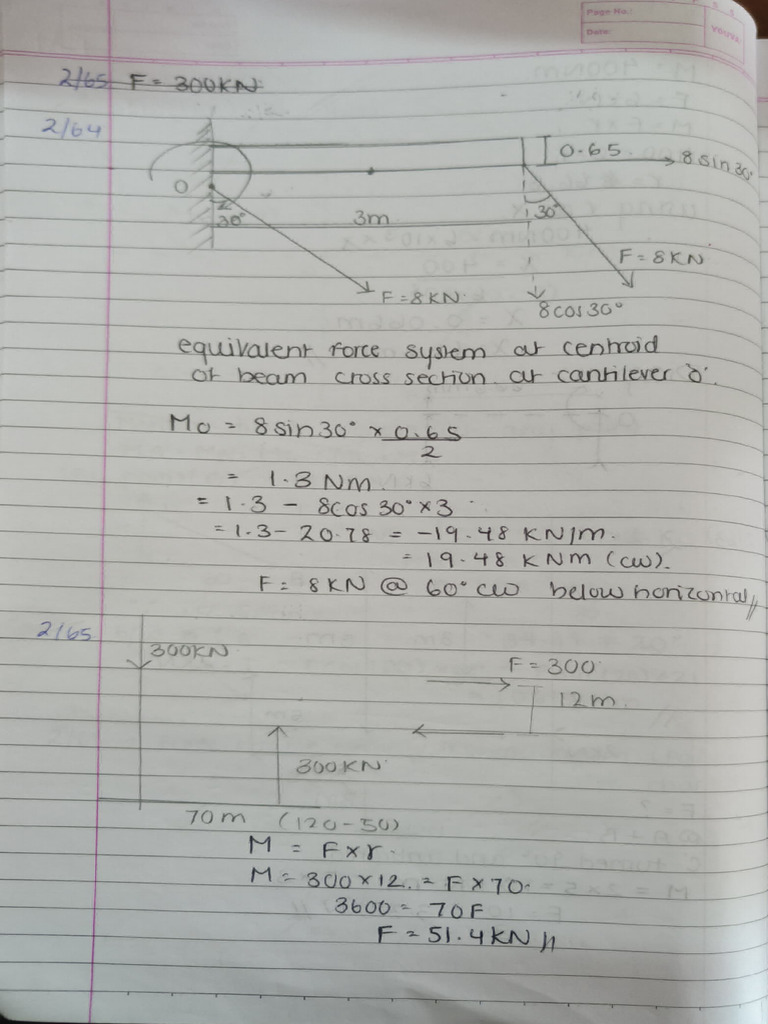 Page No.:
Date:
YOUVA
2/65 F = 300KN
2/64
0.65
8 sin 30°
O
30°
3m
30°
F = 8KN
F = 8KN
8cos30°
equivalent force system at centroid
of beam cross section at cantilever 'o'.
Mo = 8sin30° × 0.65
2
= 1.3 Nm
= 1.3 - 8cos30° × 3
= 1.3 - 20.78 = -19.48 KN/m.
= 19.48 KNm (cw).
F = 8KN @ 60° cw below horizontal //
2/65
300KN
F = 300
12m
300KN
70m (120-50)
M = F×r
M = 300×12 = F×70
3600 = 70F
F = 51.4KN //